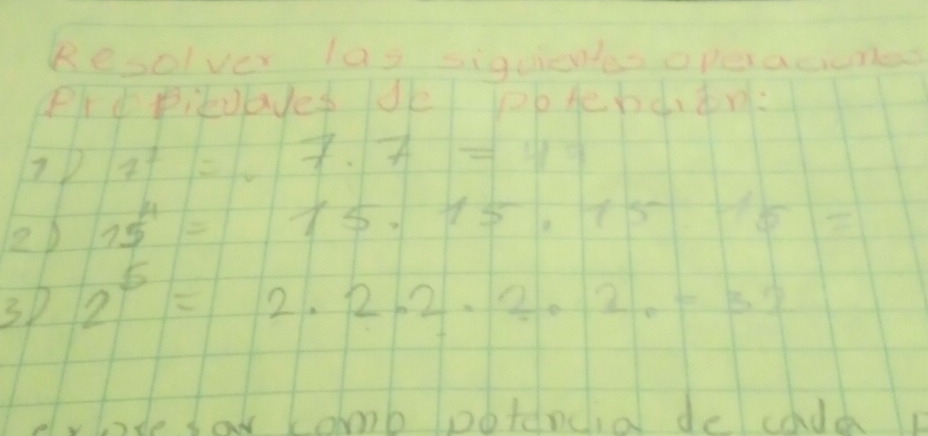 Resolver las siguientes operaciones
Propiedades de potención:
1) 7² = 7 . 7 = 49
2) 15⁴ = 15 . 15 . 15 15 =
3) 2⁵ = 2 . 2 . 2 . 2 . 2 . = 32
expresar como potencia de cada